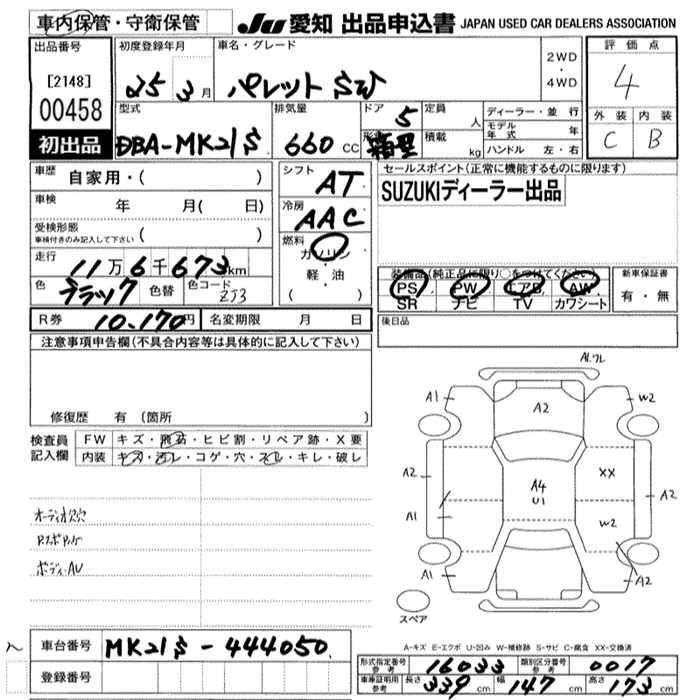 車内保管・守衛保管 JU 愛知 出品申込書 JAPAN USED CAR DEALERS ASSOCIATION
出品番号 初度登録年月 車名・グレード 2WD・4WD 評価点
[2148] 25 3月 パレット SW 4
00458 型式 排気量 ドア 5 定員 人 ディーラー・並行 外装 内装
モデル年式 年
初出品 DBA-MK21S 660cc 形状 箱型 積載 kg ハンドル 左・右 C B
車歴 自家用・( ) シフト AT セールスポイント(正常に機能するものに限ります)
SUZUKIディーラー出品
車検 年 月( 日) 冷房 AAC
受検形態
車検付きのみ記入して下さい
燃料 ガソリン
走行 11万6千673km 軽・油
( )
装備品(純正品に限り○をつけてください) 新車保証書
色 ブラック 色替 色コード ZJ3
PS PW エアB AW 有・無
SR ナビ TV カワシート
R券 10,170円 名変期限 月 日 後日品
注意事項申告欄(不具合内容等は具体的に記入して下さい)
修復歴 有(箇所
検査員記入欄 FW キズ・飛石・ヒビ割・リペア跡・X要
内装 キズ・汚レ・コゲ・穴・スレ・キレ・破レ
オーディオ欠穴
ボディーAU
A1.ワレ
A1 A2 W2
A2 A4 U1 XX A2
A1 W2
A1 A2
スペア
A-キズ E-エクボ U-凹み W-補修跡 S-サビ C-腐食 XX-交換済
車台番号 MK21S-444050
登録番号
形式指定番号 参考 16033 類別区分番号 参考 0017
車庫証明用 参考 長さ 339cm 幅 147cm 高さ 173cm